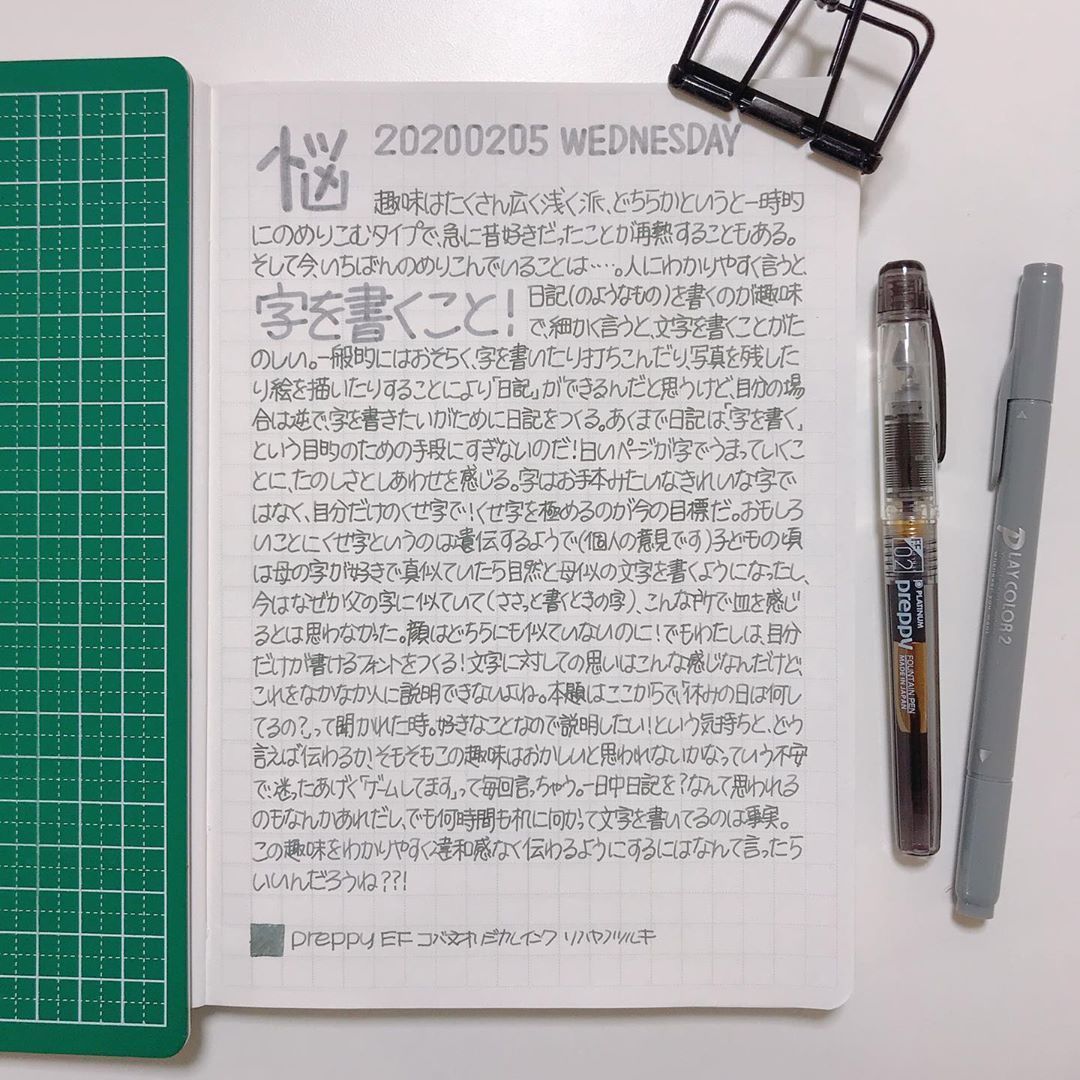 悩
20200205 WEDNESDAY
趣味はたくさん広く浅く派、どちらかというと一時的
にのめりこむタイプで、急に昔好きだったことが再熱することもある。
そして今、いちばんのめりこんでいることは……。人にわかりやすく言うと、
字を書くこと!
日記(のようなもの)を書くのが趣味
で、細かく言うと、文字を書くことがた
のしい。一般的にはおそらく、字を書いたり打ちこんだり、写真を残した
り絵を描いたりすることにより「日記」ができるんだと思うけど、自分の場
合は逆で、字を書きたいがために日記をつくる。あくまで日記は、「字を書く」
という目的のための手段にすぎないのだ!白いページが字でうまっていくこ
とに、たのしさとしあわせを感じる。字はお手本みたいなきれいな字で
はなく、自分だけのくせ字で!くせ字を極めるのが今の目標だ。おもしろ
いことにくせ字というのは遺伝するようで(個人の意見です)子どもの頃
は母の字が好きで真似ていたら自然と母似の文字を書くようになったし、
今はなぜか父の字に似ていて(ささっと書くときの字)、こんな所で血を感じ
るとは思わなかった。顔はどちらにも似ていないのに!でもわたしは、自分
だけが書けるフォントをつくる!文字に対しての思いはこんな感じなんだけど、
これをなかなか人に説明できないよね。本題はここからで、「休みの日は何し
てるの?」って聞かれた時。好きなことなので説明したい!という気持ちと、どう
言えば伝わるか、そもそもこの趣味はおかしいと思われないかなっていう不安
で、迷ったあげく「ゲームしてます」って毎回言っちゃう。一日中日記を?なんて思われる
のもなんかあれだし、でも何時間も机に向かって文字を書いてるのは事実。
この趣味をわかりやすく違和感なく伝わるようにするにはなんて言ったら
いいんだろうね??!
preppy EF コバオオリジカルインク リハヤブツルキ
02
PLATINUM
preppy
FOUNTAIN PEN
MADE IN JAPAN
PLAYCOLOR2